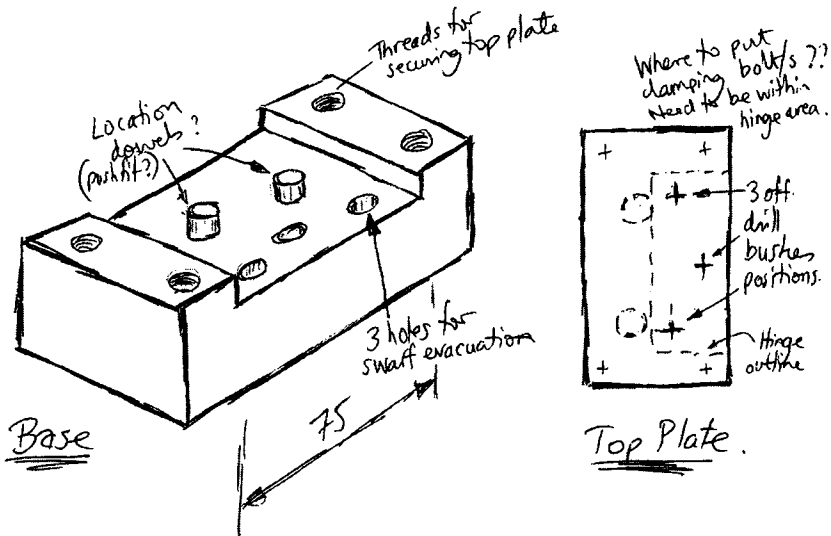 Threads for
securing top plate
Location
dowels?
(push fit?)
3 holes for
swarf evacuation
75
Base
Where to put
clamping bolt/s ??
Need to be within
hinge area.
3 off.
drill
bushes
positions.
Hinge
outline
Top Plate.